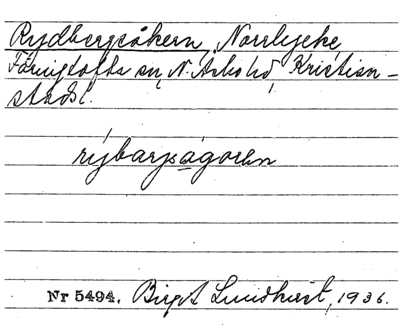 Rydbergsåkern, Norrlycke
Färingtofta sn, N. Åsbo hd, Kristian-
stads l.
rýbarjsågorən
Nr 5494. Birgit Lundkvist, 1936.